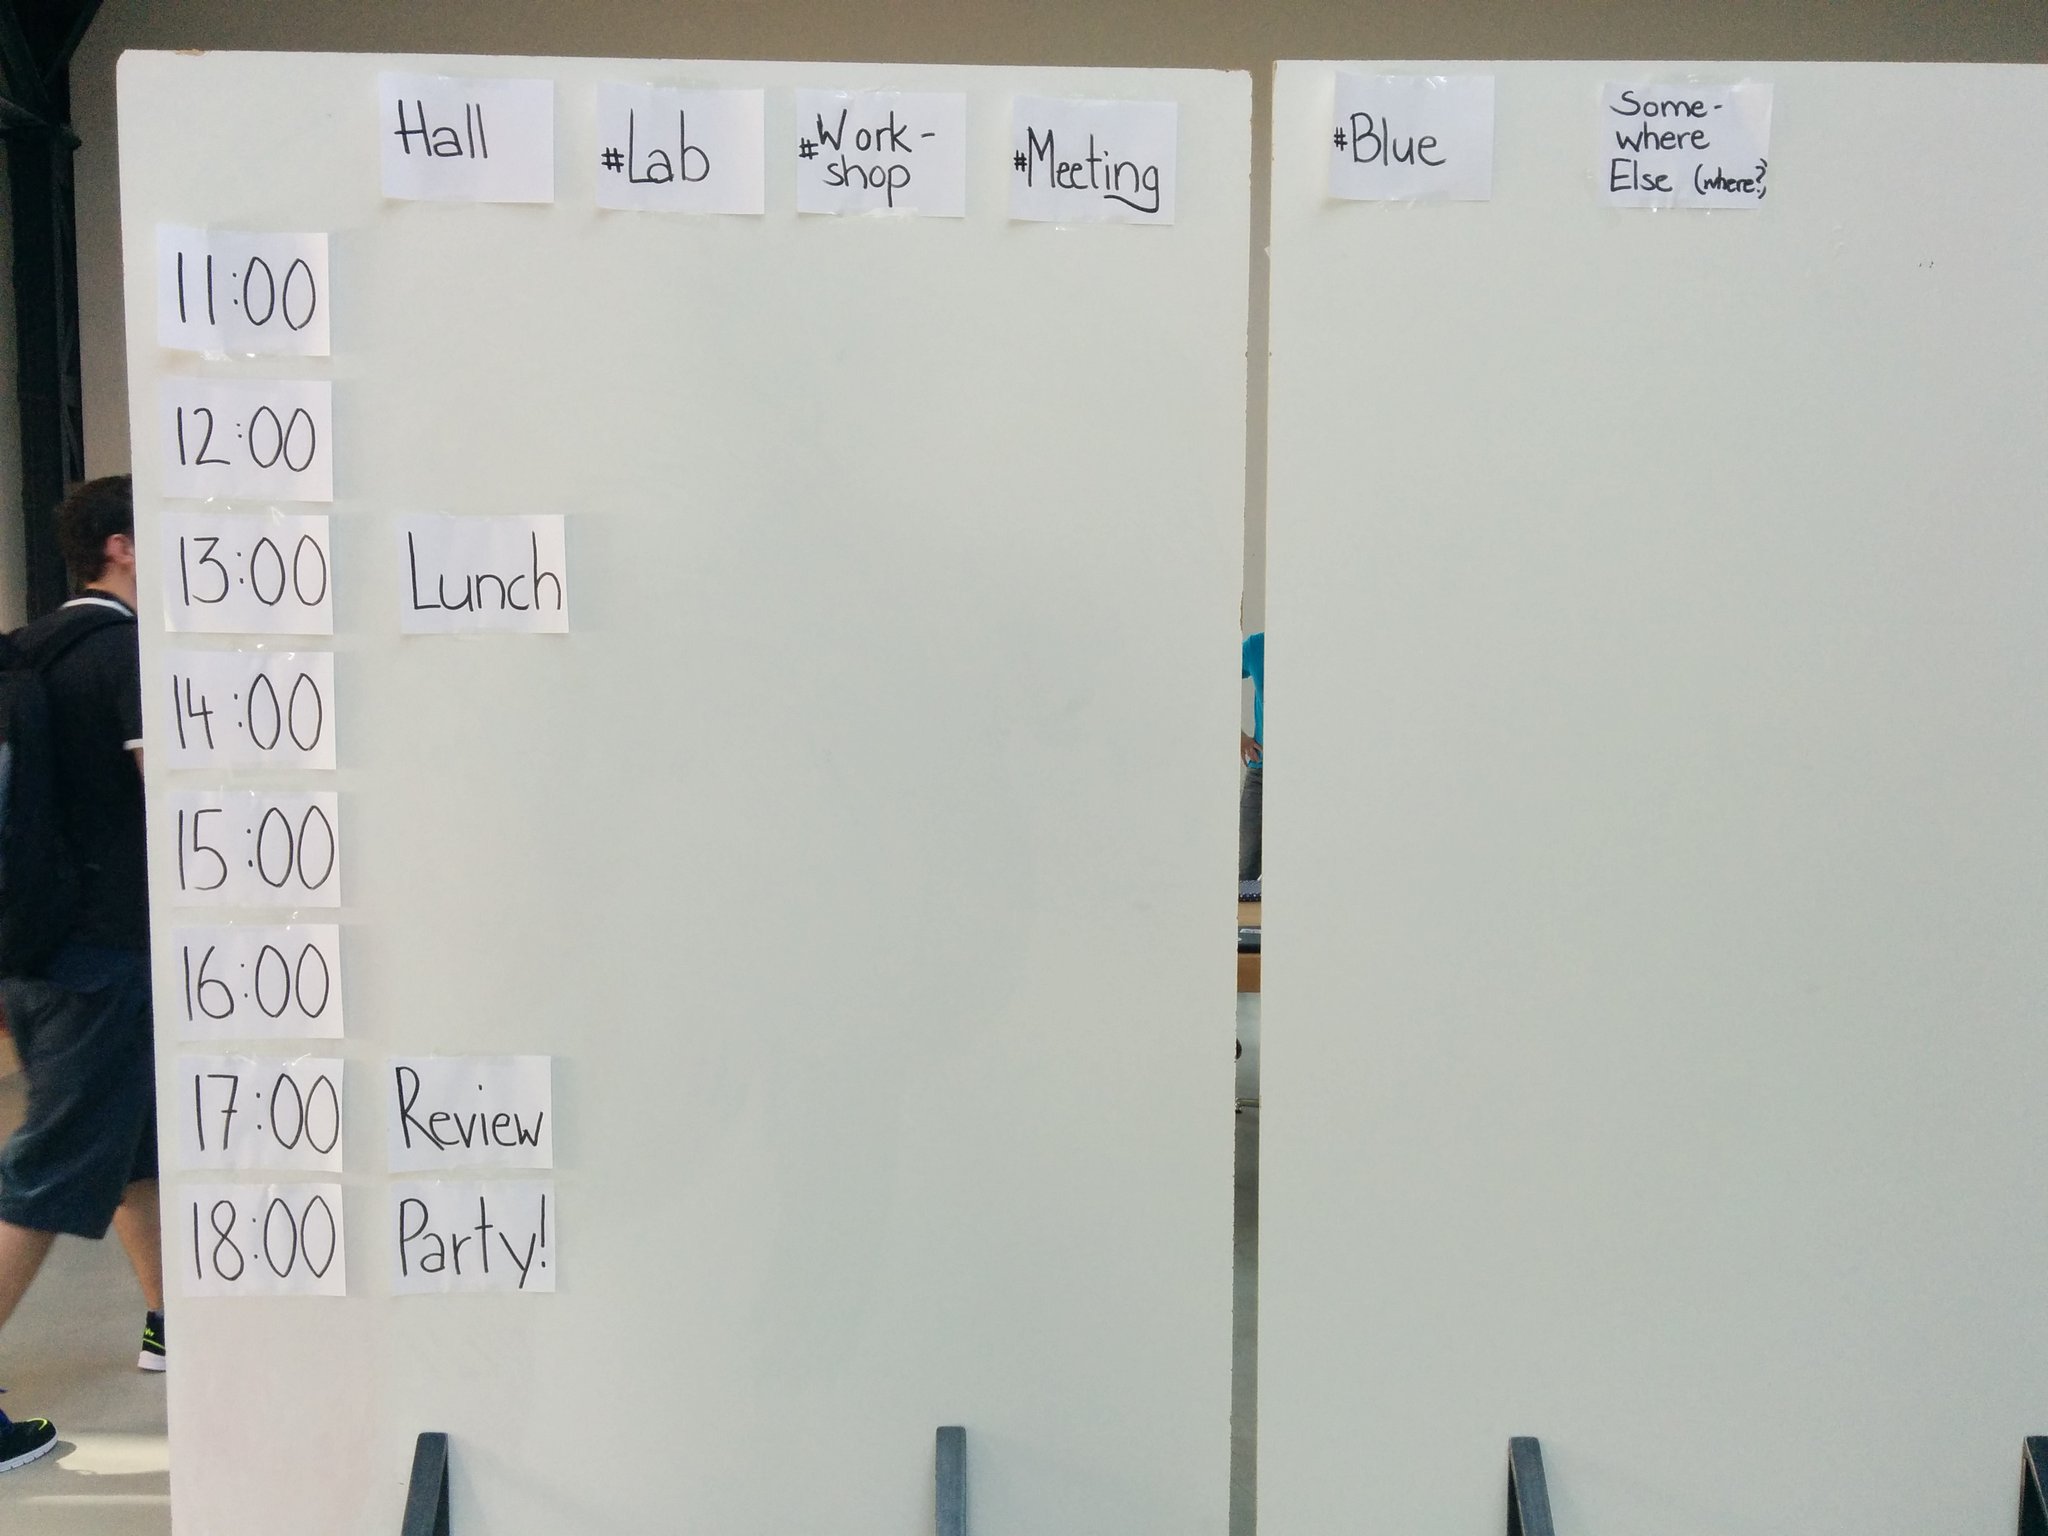 Hall
#Lab
#Work-
shop
#Meeting
#Blue
Some-
where
Else (where?)
11:00
12:00
13:00
Lunch
14:00
15:00
16:00
17:00
Review
18:00
Party!